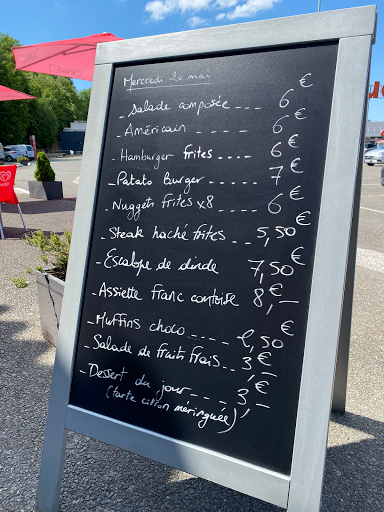 Mercredi 20 mai
- Salade composée ---- 6 €
- Américain ----- 6 €
- Hamburger frites ---- 6 €
- Patato Burger ------ 7 €
- Nuggets frites x8 ---- 6 €
- Steak haché frites -- 5,50 €
- Escalope de dinde 7,50 €
- Assiette franc comtoise 8,- €
- Muffins choco ---- 1,50 €
- Salade de fruits frais -- 3,- €
- Dessert du jour ---- 3,- €
(tarte citron méringuée)